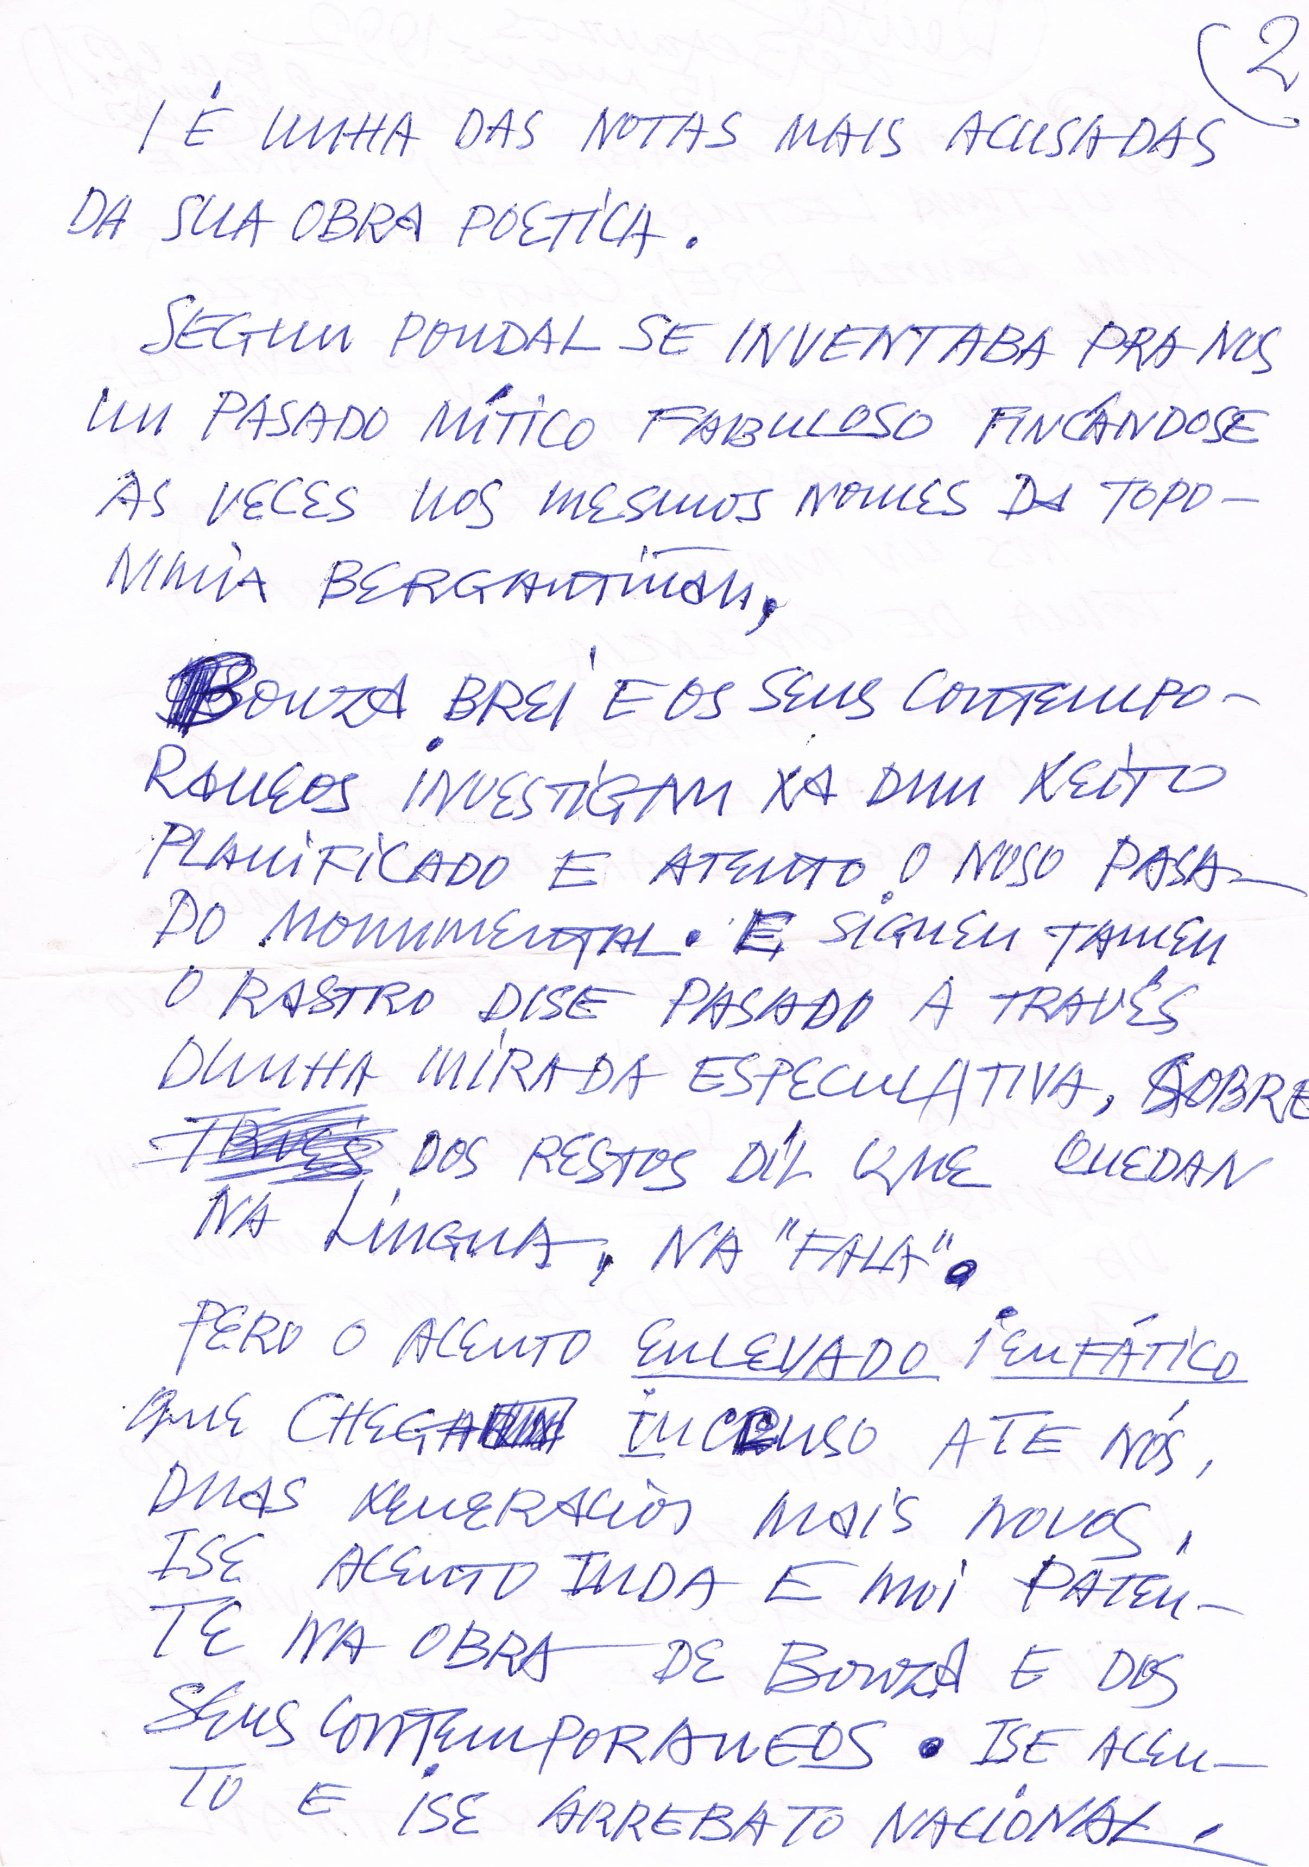 2
I É UNHA DAS NOTAS MAIS ACUSADAS
DA SUA OBRA POETICA.
SEGUN PONDAL SE INVENTABA PRA NOS
UN PASADO MÍTICO FABULOSO FINCÁNDOSE
AS VECES NOS MESMOS NOMES DA TOPO-
NIMIA BERGANTIÑAN,
BOUZA BREI E OS SEUS CONTEMPO-
RANEOS INVESTIGAN XA DUN XEITO
PLANIFICADO E ATENTO O NOSO PASA-
DO MONUMENTAL. E SIGUEN TAMEN
O RASTRO DISE PASADO A TRAVÉS
DUNHA MIRADA ESPECULATIVA, SOBRE
DOS RESTOS DÍL QUE QUEDAN
NA LINGUA, NA "FALA".
PERO O ACENTO ENLEVADO I ENFÁTICO
QUE CHEGA INCLUSO ATE NÓS,
DUAS XENERACIÓS MAIS NOVOS,
ISE ACENTO INDA E MOI PATEN-
TE NA OBRA DE BOUZA E DOS
SEUS CONTEMPORANEOS. ISE ACEN-
TO E ISE ARREBATO NACIONAL.